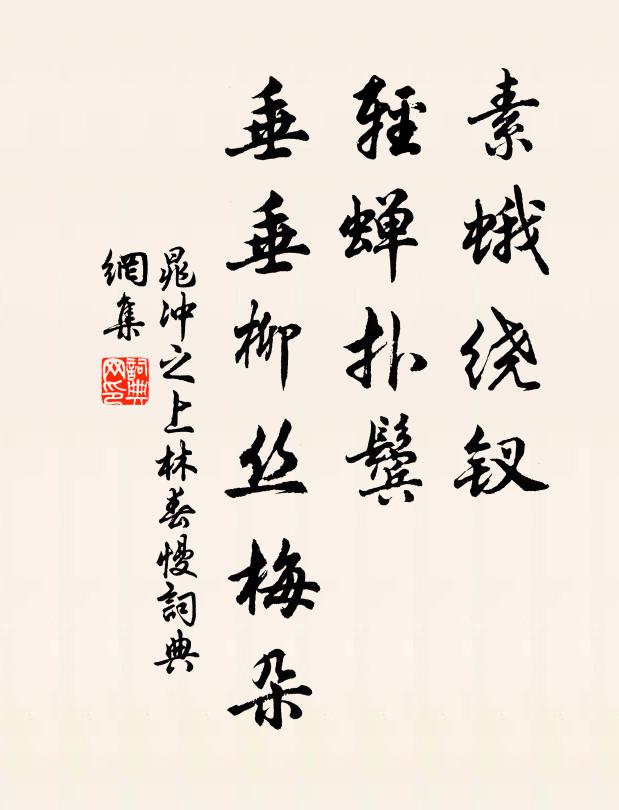 素蛾绕钗
輕蝉扑鬓
垂垂柳丝梅朵
晁冲之上林春慢詞典
網集
詞典
网印